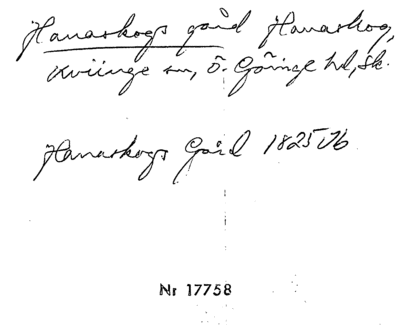 Hanaskogs gård Hanaskog,
Kviinge sn, Ö. Göinge hd, Sk.
Hanaskogs Gård 1825 Ub
Nr 17758